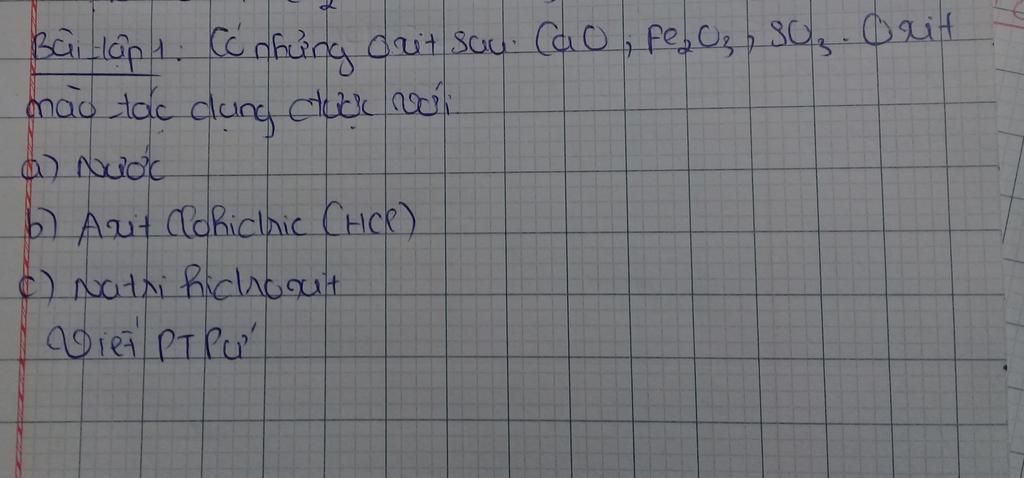 Bài tập 1: Có những oxit sau: CaO, Fe2O3, SO3. Oxit
nào tác dụng được với:
a) Nước
b) Axit Clohidric (HCl)
c) Natri hidroxit
Viết PTPƯ